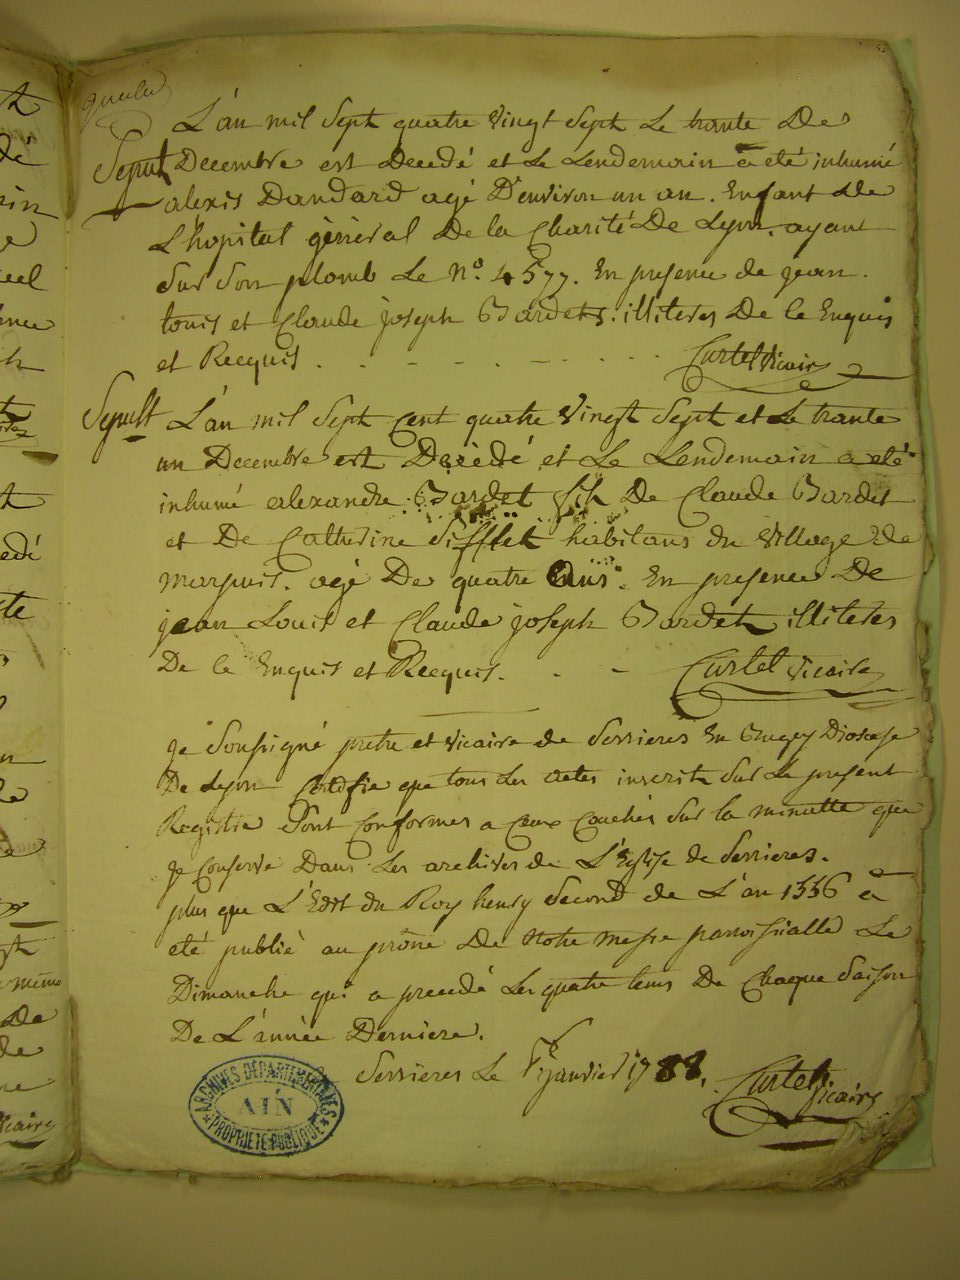 L'an mil Sept quatre vingt Sept Le trante De
Sepult Decembre est Decedé et Le Lendemain a eté inhumé
alexis Dandard agé D'environ un an. Enfant de
L'hopital géneral De la Charité De Lyon. ayant
Sur Son plomb Le N.° 4577. En presence de jean
Louis et Claude joseph Bardets. illiteres De ce Enquis
et Recquis . - . - . - - . . . . Curtet Vicaire
Sepult L'an mil Sept Cent quatre Vingt Sept et Le trante
un Decembre est Decédé et Le Lendemain a eté
inhumé alexandre Bardet fils De Claude Bardet
et De Catherine Sifflet habitans du Village de
Marpuis. agé De quatre Ans. En presence De
jean Louis et Claude joseph Bardets illiteres
De ce Enquis et Recquis. . - Curtet Vicaire
je Soussigné pretre et Vicaire de Serrieres En Bugey Diocese
De Lyon Certifie que tous Les actes inscrits Sur Le present
Registre Sont Conformes a Ceux Couchés Sur la minutte que
je Conserve Dans Les archives de L'Eglise de Serrieres.
plus que L'Edit du Roy henry Second de L'an 1556 a
eté publié au prône De Notre Messe paroissialle Le
Dimanche qui a precedé Les quatre tems De Chaque Saison
De L'année Derniere.
Serrieres Le janvier 1788. Curtet Vicaire
ARCHIVES DÉPARTEMENTALES
AIN
PROPRIÉTÉ PUBLIQUE